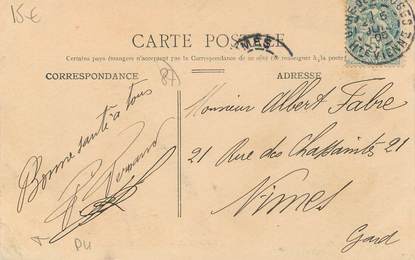 15€
CARTE POSTALE
Certains pays étrangers n'acceptent pas la Correspondance de ce côté (se renseigner à la poste)
CORRESPONDANCE
87
ADRESSE
Bonne santé à tous
Monsieur Albert Fabre
21 Rue des Chassaintes 21
Nimes
Gard